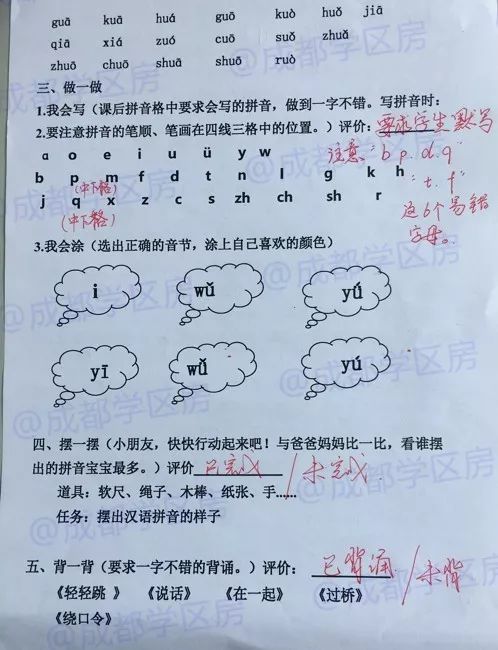 guā kuā huá guō kuò huǒ jiā
qiā xiá zuó cuō suǒ zhuǎ
zhuō chuō shuā shuō ruò
三、做一做
1.我会写（课后拼音格中要求会写的拼音，做到一字不错。写拼音时：
2.要注意拼音的笔顺、笔画在四线三格中的位置。）评价：要求学生默写
a o e i u ü y w
注意："b p. d. q
b p m f d t n l g k h
(中下格)
"t. f"
j q x z c s zh ch sh r
(中下格)
这6个易错
字母。
3.我会涂（选出正确的音节，涂上自己喜欢的颜色）
i wǔ yú
yī wǔ yú
四、摆一摆（小朋友，快快行动起来吧！与爸爸妈妈比一比，看谁摆
出的拼音宝宝最多。）评价 已完成 / 未完成
道具：软尺、绳子、木棒、纸张、手......
任务：摆出汉语拼音的样子
五、背一背（要求一字不错的背诵。）评价： 已背诵 / 未背
《轻轻跳 》 《说话》 《在一起》 《过桥》
《绕口令》
@成都学区房
@成都学区房
@成都学区房
@成都学区房
@成都学区房
@成都学区房